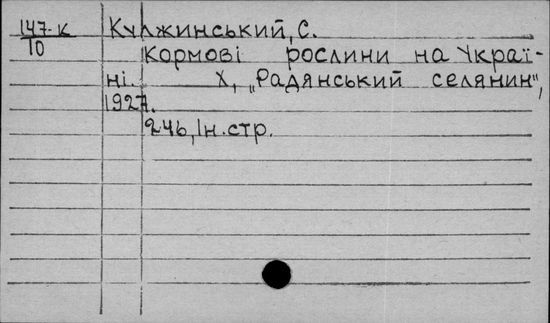 147-к
10
Кулжинський, С.
Кормові рослини на Украї-
ні. Х, „Радянський селянин",
1927.
246, Iн.стр.